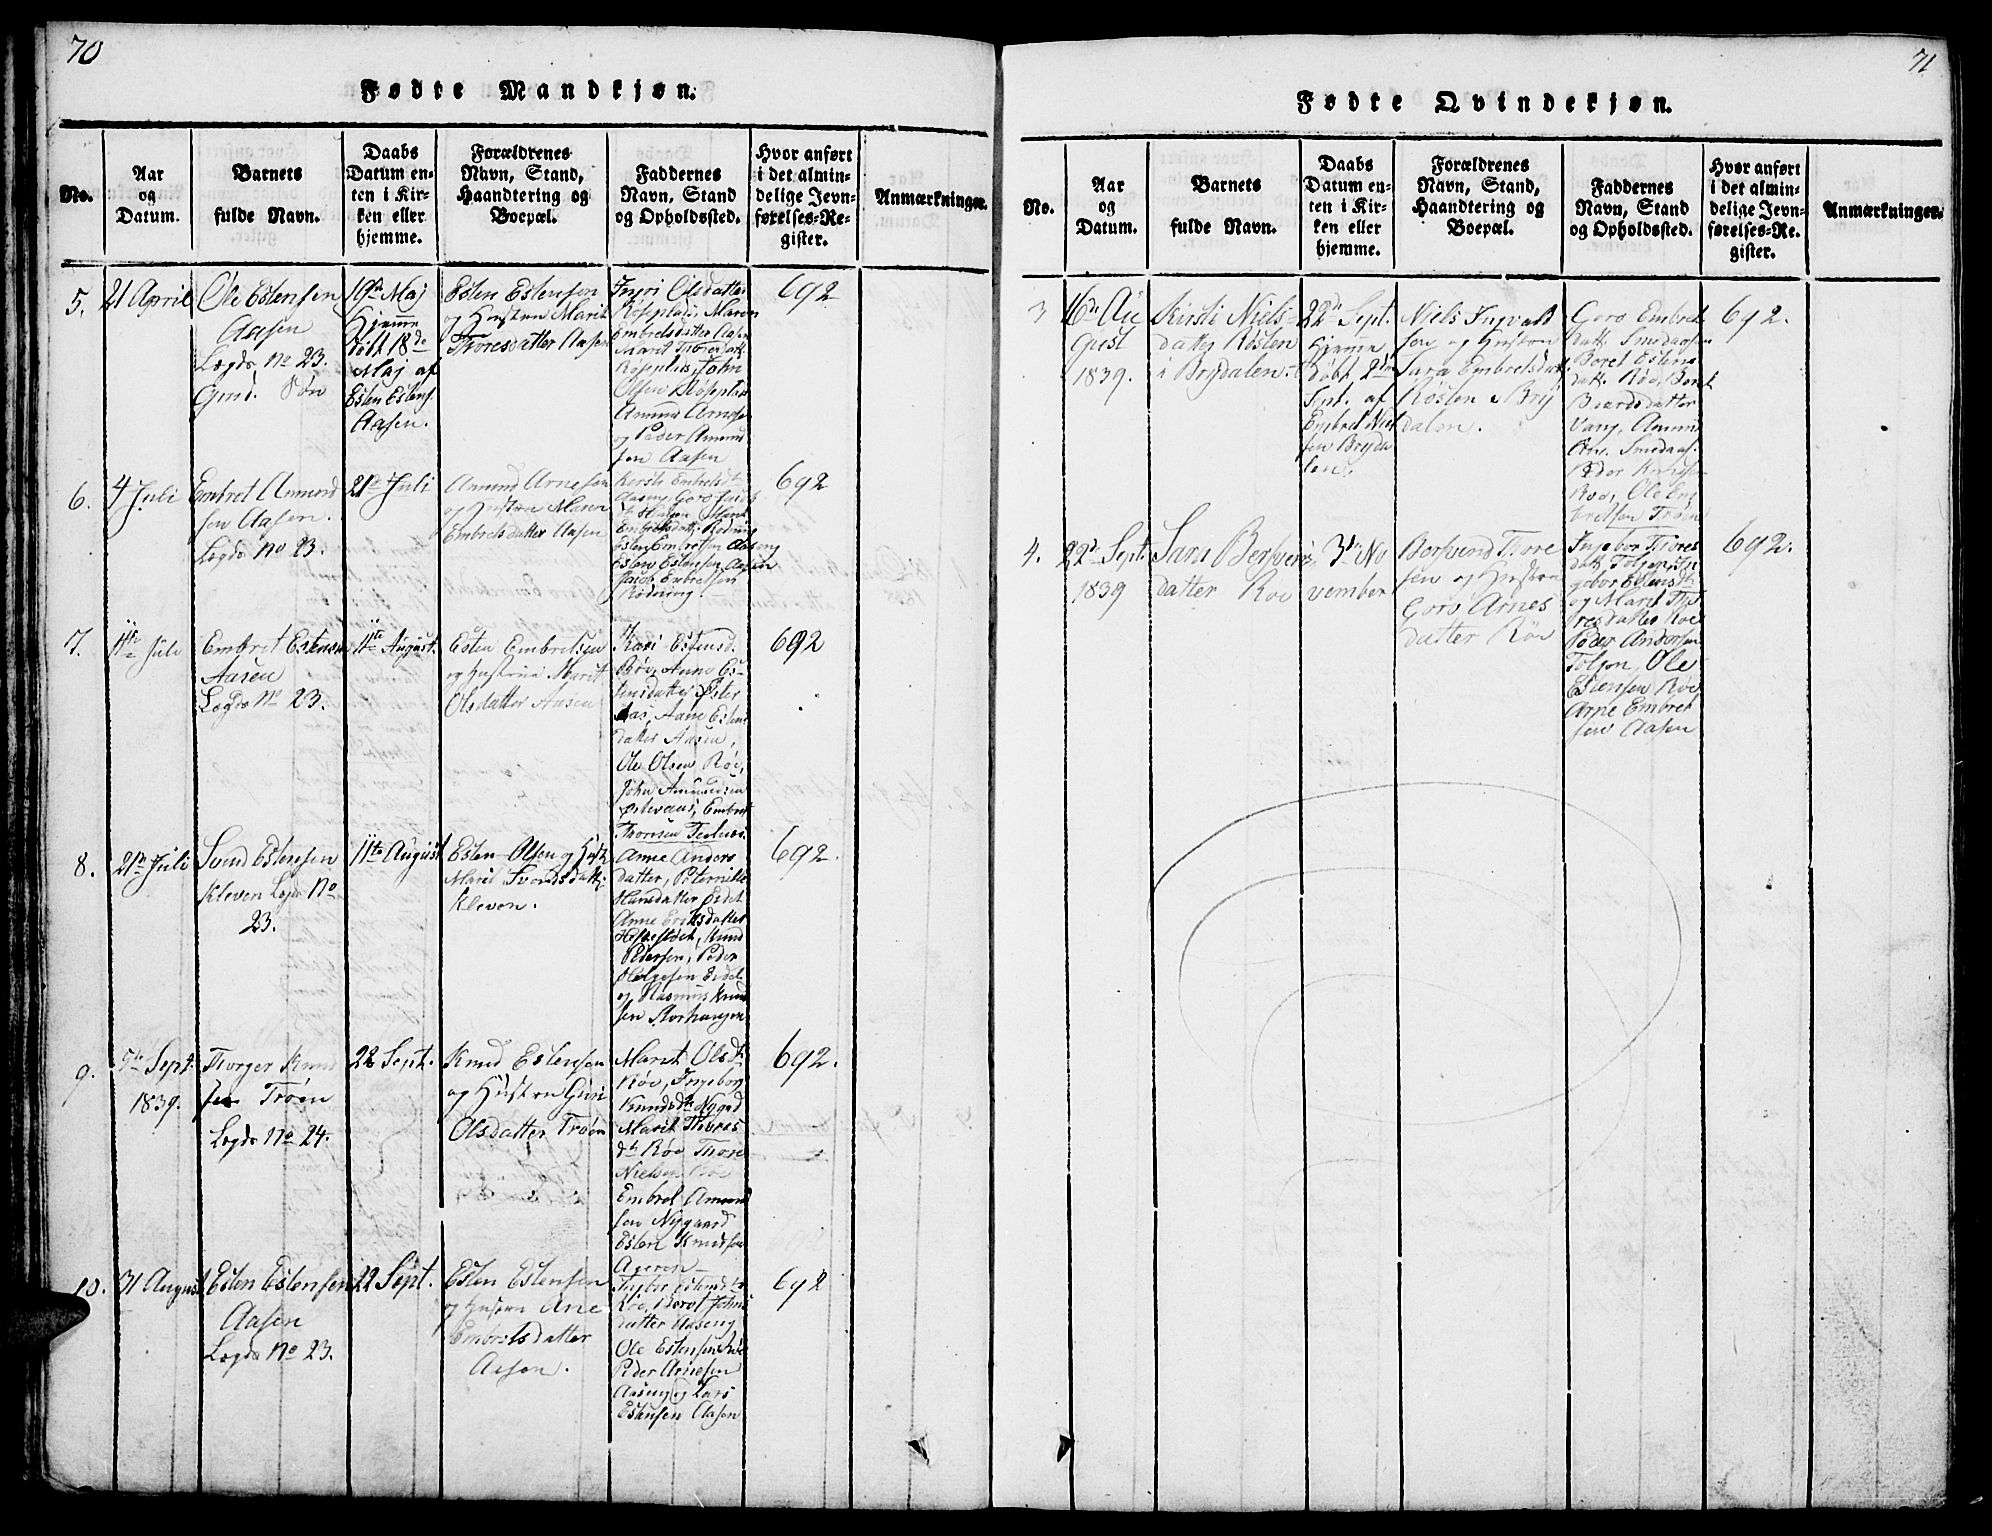 70
Fødte Mandkjøn.
No.
Aar
og
Datum.
Barnets
fulde Navn.
Daabs
Datum en-
ten i Kir-
ken eller
hjemme.
Forældrenes
Navn, Stand,
Haandtering og
Boepæl.
Faddernes
Navn, Stand
og Opholdssted.
Hvor anført
i det almin-
delige Jevn-
førelses-Re-
gister.
Anmærkninger.
5.
21 April
Ole Estensen
Aasen
Lægds No 23.
Gmd. Søn
19de Maj
Hjemme
døbt 18de
Maj af
Esten Estens.
Aasen.
Esten Estensen
og Hustru Marit
Thoresdatter Aasen
Ingri Olsdatter
Røseplads, Maren
Embretsdatter Aasen
Marit Thoresdatt.
Røseplds, John
Olsen Røseplds
Amund Arnesen
og Peder Amund
sen Aasen
692
6.
4 Juli
Embret Amund
sen Aasen.
Lægds No 23.
21de Juli
Amund Arnesen
og Hustru Maren
Embretsdatter Aasen
Kersti Embretsdt
Aaseng, Goro
Marit
Embretsdatt. Rødning
Esten Embretsen Aaseng
Esten Estensen Aasen
Jacob Embretsen
Rødning
692
7.
11te Juli
Embret Estensen
Aasen
Lægds No 23.
11te August.
Esten Embretsen
og Hustrue Marit
Olsdatter Aasen
Kari Estensd.
Røe, Anne Es-
tensdatter Øster
Aas, Aane Estens
datter Aasen,
Ole Olsen Røe,
John Amundsen
Østeraas, Embret
Thoresen
692
8.
21de Juli
Svend Estensen
Kleven Lægds No
23.
11te August
Esten Olsen og Hust.
Marit Svendsdatt.
Kleven.
Anne Anders
datter, Peternille
Hansdatter Eidet
Anne Eriksdatter
Knud
Pedersen, Peder
Eidet
og Rasmus Knud
sen
692.
9.
5te Sept.
1839.
Thorger Knud
sen Trøen
Lægds No 24.
22 Sept.
Knud Estensen
og Hustru Guri
Olsdatter Trøen
Marit Olsdt.
Røe, Ingeborg
Knudsdt. Nygrd
Marit Thores
dt. Røe Thore
Nielsen Røe
Embret Amund
sen Nygaard
Esten Knudsen
Ageren
692.
10.
31 August
Esten Estensen
Aasen
Lægds No 23.
22 Sept.
Esten Estensen
og Hustru Ane
Embretsdatter
Aasen.
Ingbor Estensdtr
Røe, Beret Johns
datter Aaseng
Ole Estensen Røe
Peder Arnesen
Aaseng og Lars
Estensen Aasen
692
71
Fødte Qvindekjøn.
No.
Aar
og
Datum.
Barnets
fulde Navn.
Daabs
Datum en-
ten i Kir-
ken eller
hjemme.
Forældrenes
Navn, Stand,
Haandtering og
Boepæl.
Faddernes
Navn, Stand
og Opholdssted.
Hvor anført
i det almin-
delige Jevn-
førelses-Re-
gister.
Anmærkninger.
3
16de Au
gust
1839.
Kirsti Niels-
datter Røsten
i Brydalen.
22de Sept.
Hjemme
døbt 2den
Sept. af
Embret Niel
sen Bryda
len.
Niels Ingvald
sen og Hustru
Sara Embretsdatt.
Røsten i Bry
dalen.
Goro Embret
datt. Smedaasen
Beret Estens
datt. Røe, Beret
Beardsdatter
Vang, Amun
Arn. Smedaas.
Peder
Roe, Ole Em
bretsen Trøen
692.
4.
22de Sept.
1839
Sari Bersvens
datter Roe
3de No
vember
Bersvend Thore
sen og Hustru
Goro Arnes
datter Røe
Ingebor Thores
datt. Tolgen, In
gebor Estensdt.
og Marit Tho
resdatter Roe
Peder Andersen
Tolgen, Ole
Estensen Røe
Arne Embret
sen Aasen
692.